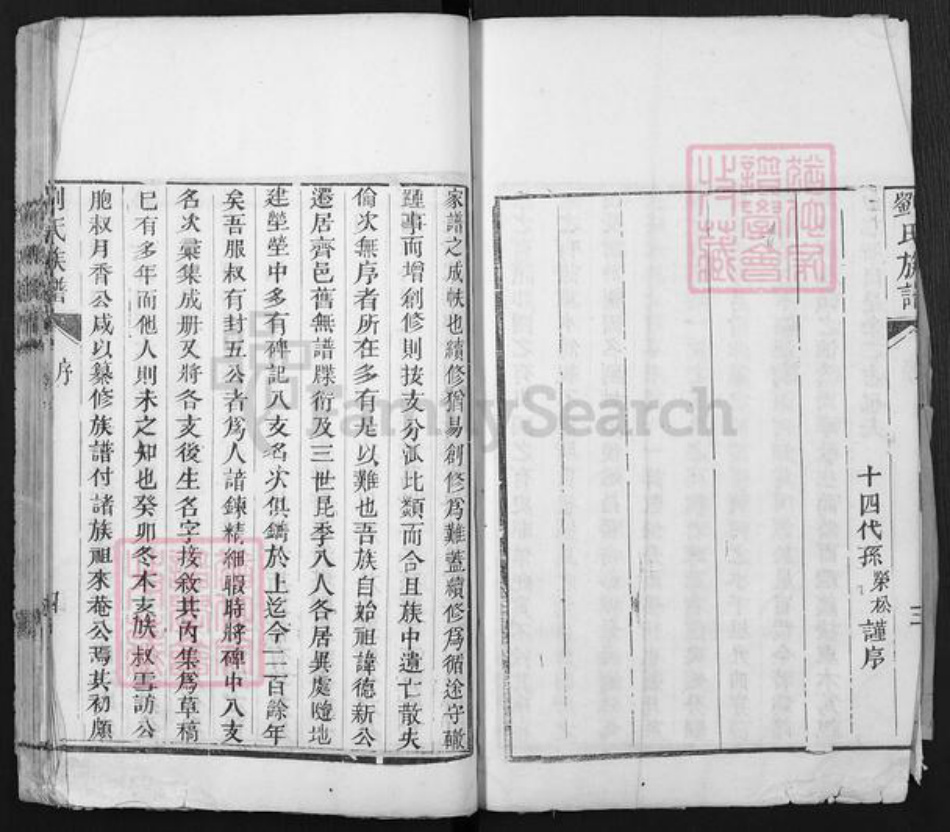 劉氏族譜
三
十四代孫榮松謹序
家譜之成帙也續修猶易創修為難蓋續修為循途守轍
踵事而增創修則按支分派比類而合且族中遺亡散失
倫次無序者所在多有是以難也吾族自始祖諱德新公
遷居齊邑舊無譜牒衍及三世昆季八人各居異處隨地
建塋塋中多有碑記八支名次俱鐫於上迄今二百餘年
矣吾服叔有封五公者為人諳鍊精細暇時將碑中八支
名次彙集成冊又將各支後生名字接敘其內集為草稿
已有多年而他人則未之知也癸卯冬本支族叔雪訪公
胞叔月香公咸以纂修族譜付諸族祖來菴公焉其初頗
劉氏族譜
序
四
FamilySearch